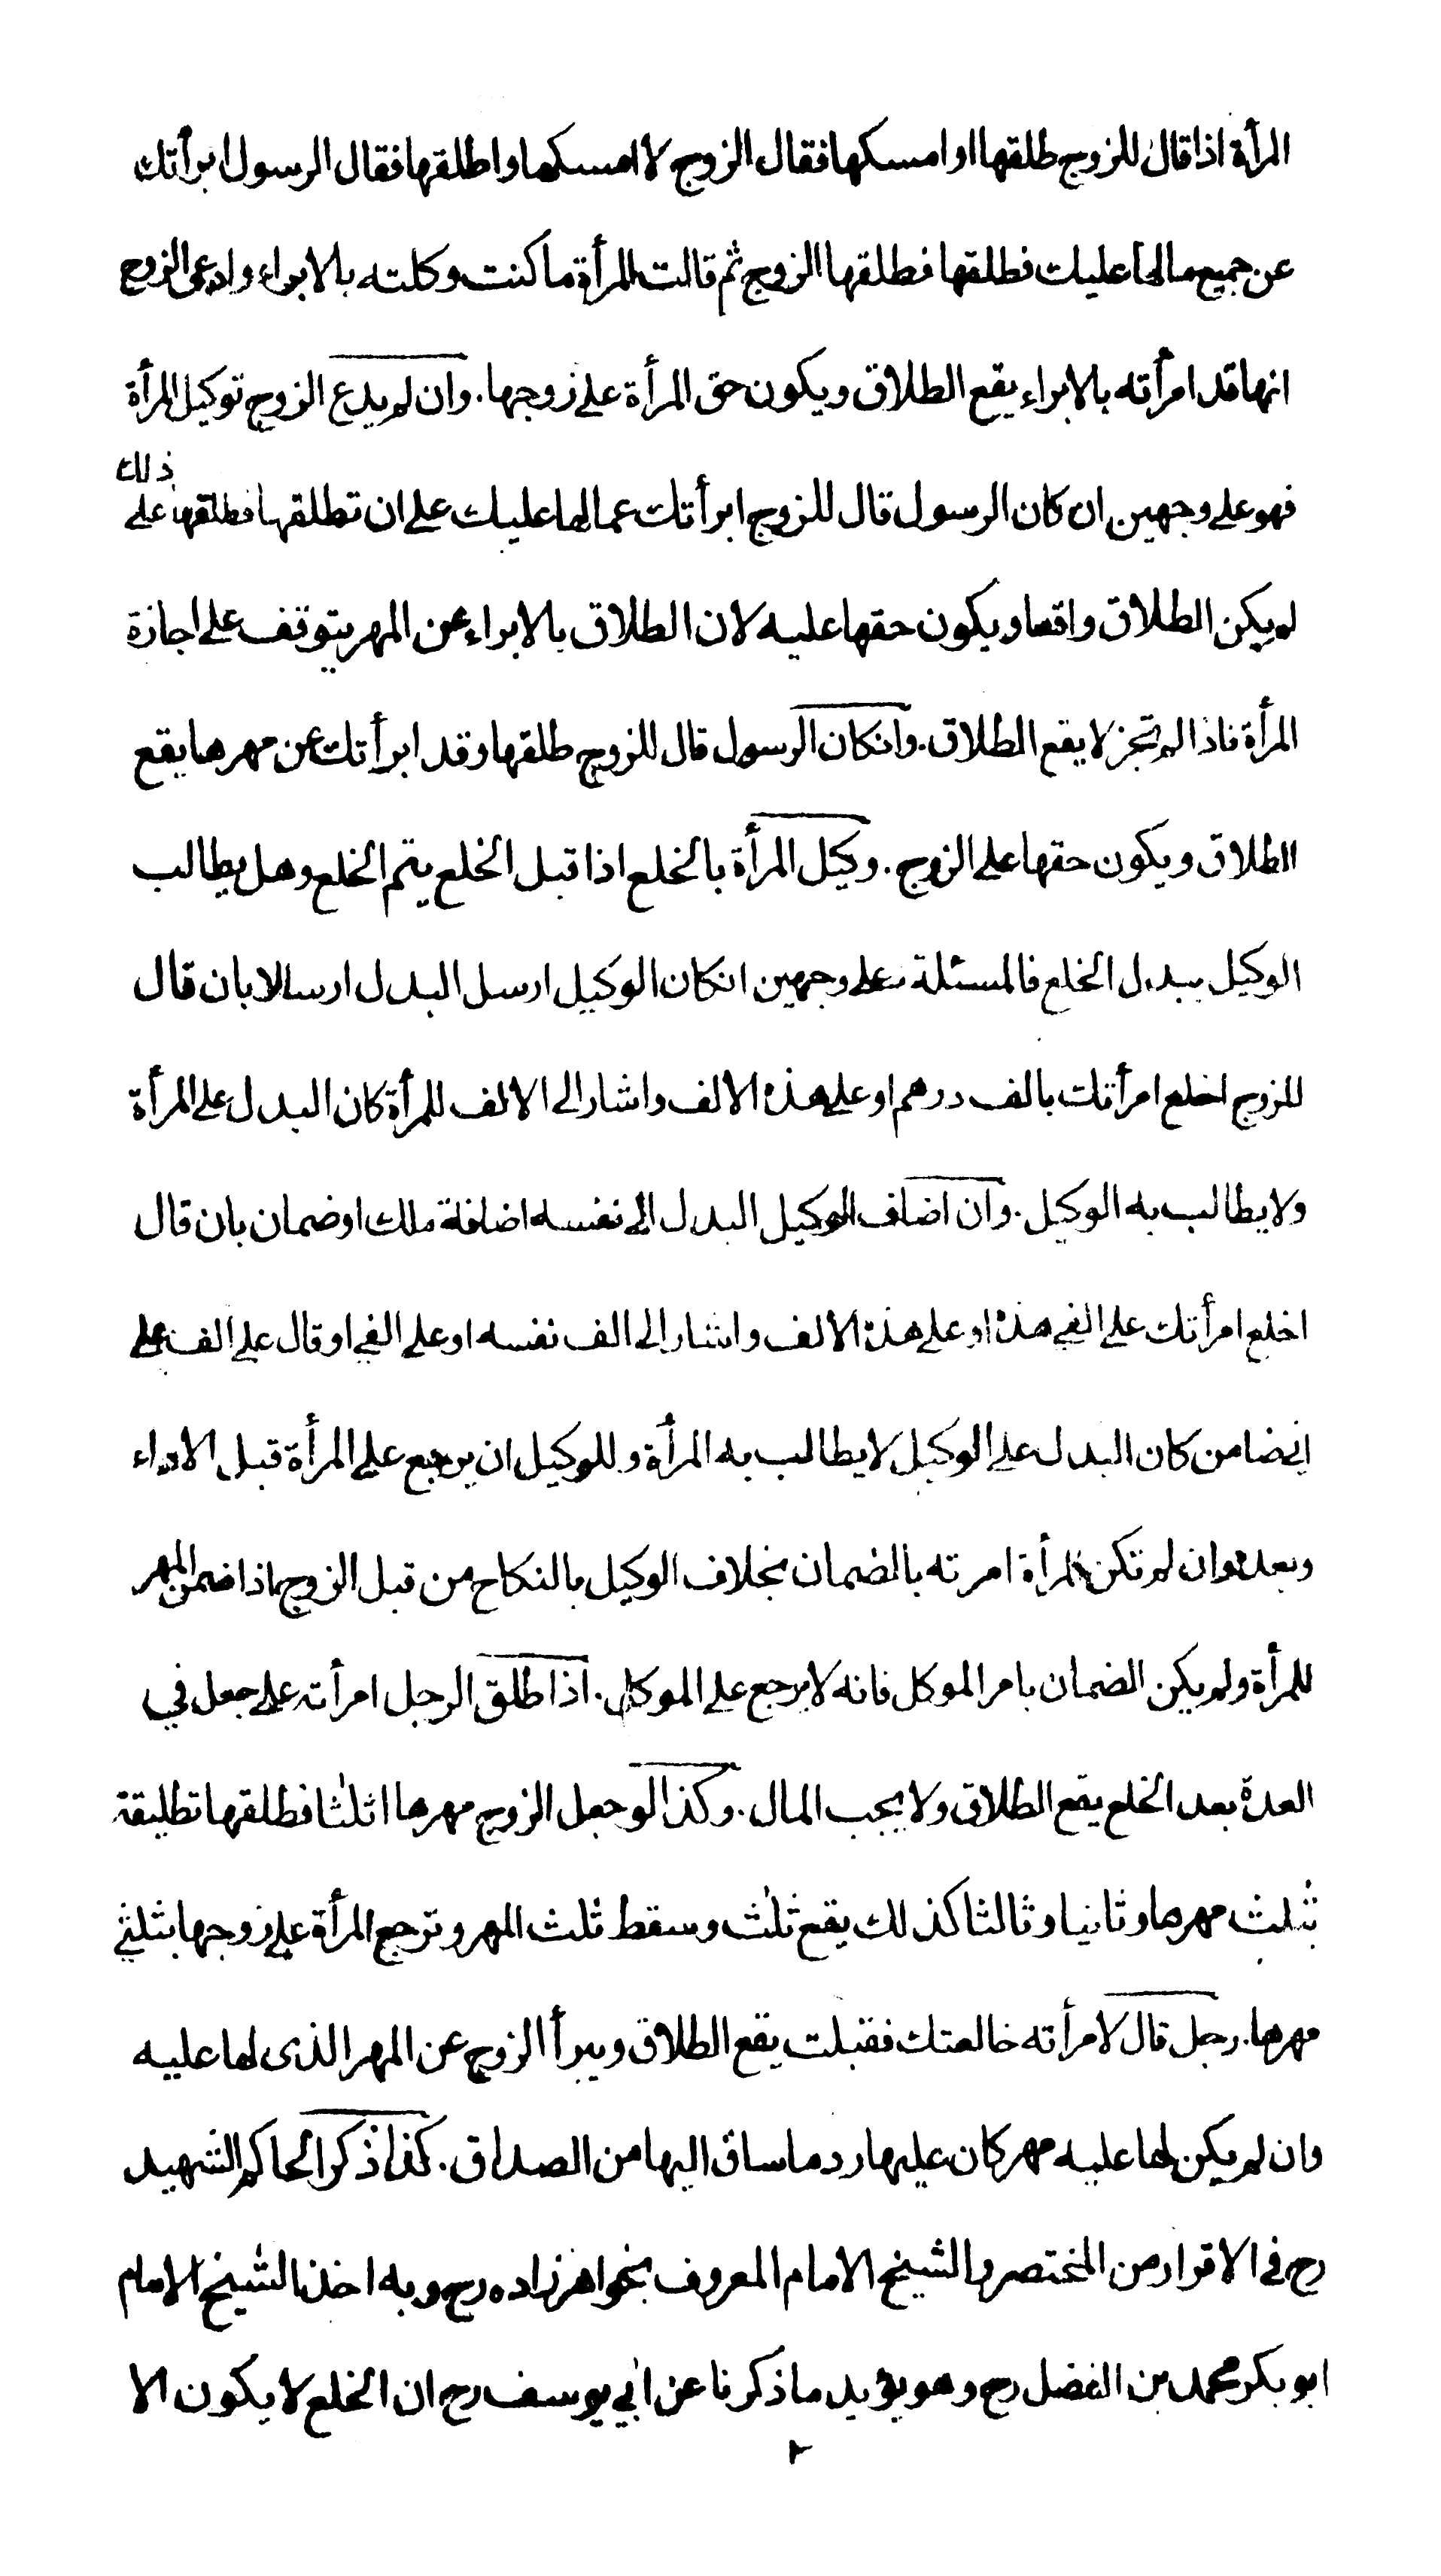 المرأة اذا قال للزوج طلقها او امسكها فقال الزوج لا امسكها واطلقها فقال الرسول ابرأتك
عن جميع مالها عليك فطلقها فطلقها الزوج ثم قالت المرأة ما كنت وكلته بالابراء وادعى الزوج
انها قد امرأته بالابراء يقع الطلاق ويكون حق المرأة على زوجها. وان لم يدع الزوج توكيل المرأة
فهو على وجهين ان كان الرسول قال للزوج ابرأتك عمالها عليك على ان تطلقها فطلقها على ذلك
لم يكن الطلاق واقعا ويكون حقها عليه لان الطلاق بالابراء عن المهر يتوقف على اجازة
المرأة فاذا لم تجز لا يقع الطلاق. وانكان الرسول قال للزوج طلقها وقد ابرأتك عن مهرها يقع
الطلاق ويكون حقها على الزوج. وكيل المرأة بالخلع اذا قبل الخلع يتم الخلع وهل يطالب
الوكيل ببدل الخلع فالمسئلة على وجهين انكان الوكيل ارسل البدل ارسالا بان قال
للزوج اخلع امرأتك بالف درهم او على هذه الالف واشار الى الالف للمرأة كان البدل على المرأة
ولا يطالب به الوكيل. وان اضاف الوكيل البدل الى نفسه اضافة ملك او ضمان بان قال
اخلع امرأتك على الفي هذه او على هذه الالف واشار الى الف نفسه او على الفي او قال على الف على
اني ضامن كان البدل على الوكيل لا يطالب به المرأة وللوكيل ان يرجع على المرأة قبل الاداء
وبعده وان لم تكن المرأة امرته بالضمان بخلاف الوكيل بالنكاح من قبل الزوج اذا ضمن المهر
للمرأة ولم يكن الضمان بامر الموكل فانه لا يرجع على الموكل. اذا طلق الرجل امرأته على جعل في
العدة بعد الخلع يقع الطلاق ولا يجب المال. وكذا لو جعل الزوج مهرها اثلثا فطلقها تطليقة
بثلث مهرها وثانيا وثالثا كذلك يقع ثلث وسقط ثلث المهر وترجع المرأة على زوجها بثلثي
مهرها. رجل قال لامرأته خالعتك فقبلت يقع الطلاق ويبرأ الزوج عن المهر الذى لها عليه
وان لم يكن لها عليه مهر كان عليها رد ما ساق اليها من الصداق. كذا ذكر الحاكم الشهيد
رح في الاقرار من المختصر والشيخ الامام المعروف بخواهر زاده رح وبه اخذ الشيخ الامام
ابو بكر محمد بن الفضل رح وهو يؤيد ما ذكرنا عن ابي يوسف رح ان الخلع لا يكون الا